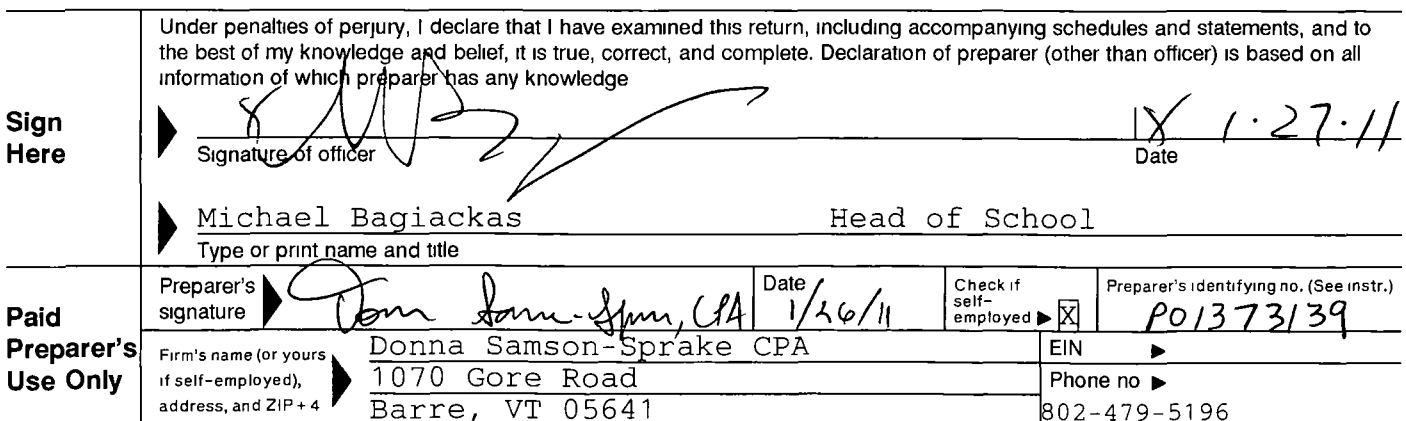 Under penalties of perjury, I declare that I have examined this return, including accompanying schedules and statements, and to
the best of my knowledge and belief, it is true, correct, and complete. Declaration of preparer (other than officer) is based on all
information of which preparer has any knowledge
Sign
Here
1·27·11
Signature of officer Date
Michael Bagiackas Head of School
Type or print name and title
Paid
Preparer's
Use Only
Preparer's
signature
CPA
Date
1/26/11
Check if
self-
employed ▶ X
Preparer's identifying no. (See instr.)
P01373139
Firm's name (or yours
if self-employed),
address, and ZIP + 4
Donna Samson-Sprake CPA
1070 Gore Road
Barre, VT 05641
EIN ▶
Phone no ▶
802-479-5196